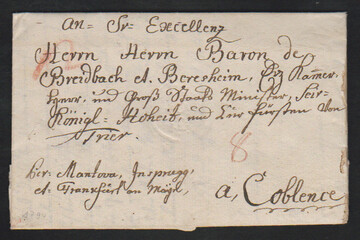 An= Sr= Excellenz
Herrn Herrn Baron de
Breidbach et Beresheim, Kamer-
und Groß Staats Minister, Seir-
Königl= Hoheit, und Fürsten Von
Trier.
8
per Mantova, Inspragg,
et Frankfurt
a, Coblence